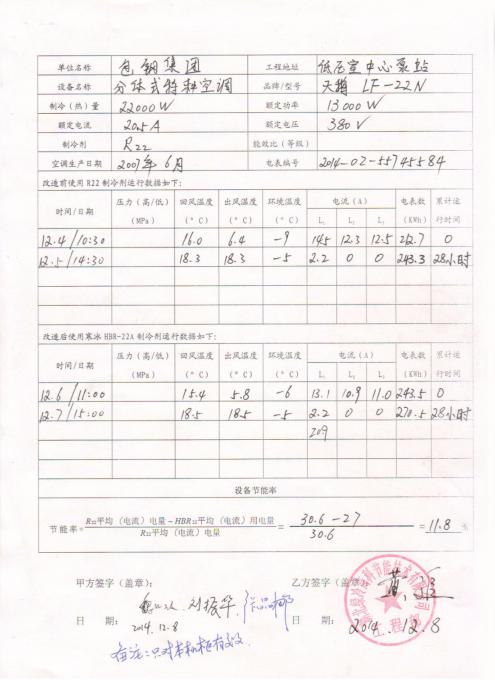 单位名称 包钢集团 工程地址 低压室中心泵站
设备名称 分体式特种空调 品牌/型号 天鹅 LF-22N
制冷（热）量 22000W 额定功率 13000W
额定电流 20.5A 额定电压 380V
制冷剂 R22 能效比（等级）
空调生产日期 2007年6月 电表编号 2014-02-55745584
改造前使用 R22 制冷剂运行数据如下：
时间/日期 压力（高/低）（MPa） 回风温度（°C） 出风温度（°C） 环境温度（°C） 电流（A） L₁ L₂ L₃ 电表数（KWh） 累计运行时间
12.4/10:30 16.0 6.4 -9 14.5 12.3 12.5 212.7 0
12.5/14:30 18.3 18.3 -5 2.2 0 0 243.3 28小时
改造后使用寒冰 HBR-22A 制冷剂运行数据如下：
时间/日期 压力（高/低）（MPa） 回风温度（°C） 出风温度（°C） 环境温度（°C） 电流（A） L₁ L₂ L₃ 电表数（KWh） 累计运行时间
12.6/11:00 15.4 5.8 -6 13.1 10.9 11.0 243.5 0
12.7/15:00 18.5 18.5 -5 2.2 0 0 270.5 28小时
209
设备节能率
节能率= R₂₂平均（电流）电量－HBR₂₂平均（电流）用电量 / R₂₂平均（电流）电量 = 30.6-27 / 30.6 = 11.8 %
甲方签字（盖章）： 乙方签字（盖章）：
刘振华
日 期： 2014.12.8 日 期： 2014.12.8
工程部
备注：只对本机柜有效